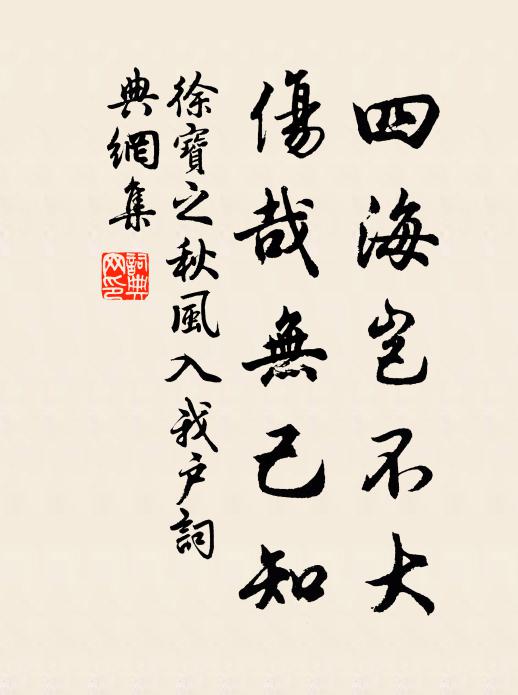 四海岂不大
傷哉無己知
徐寶之秋風入我户詞
典網集
詞典网印